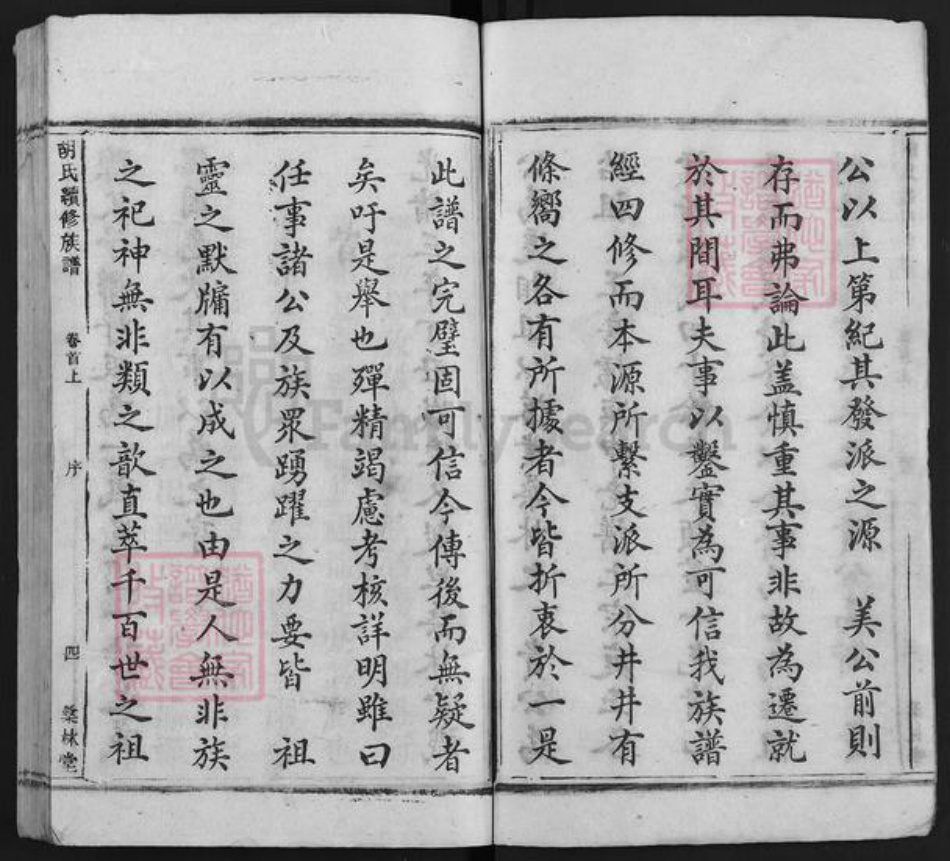 公以上第紀其發派之源　美公前則
存而弗論此盖慎重其事非故為遷就
於其間耳夫事以鑿實為可信我族譜
經四修而本源所繫支派所分井井有
條嚮之各有所據者今皆折衷於一是
此譜之完璧固可信今傳後而無疑者
矣吁是舉也殫精竭慮考核詳明雖曰
任事諸公及族眾踴躍之力要皆　祖
靈之默牖有以成之也由是人無非族
之祀神無非類之歆直萃千百世之祖
胡氏續修族譜
卷首上
序
四
FamilySearch